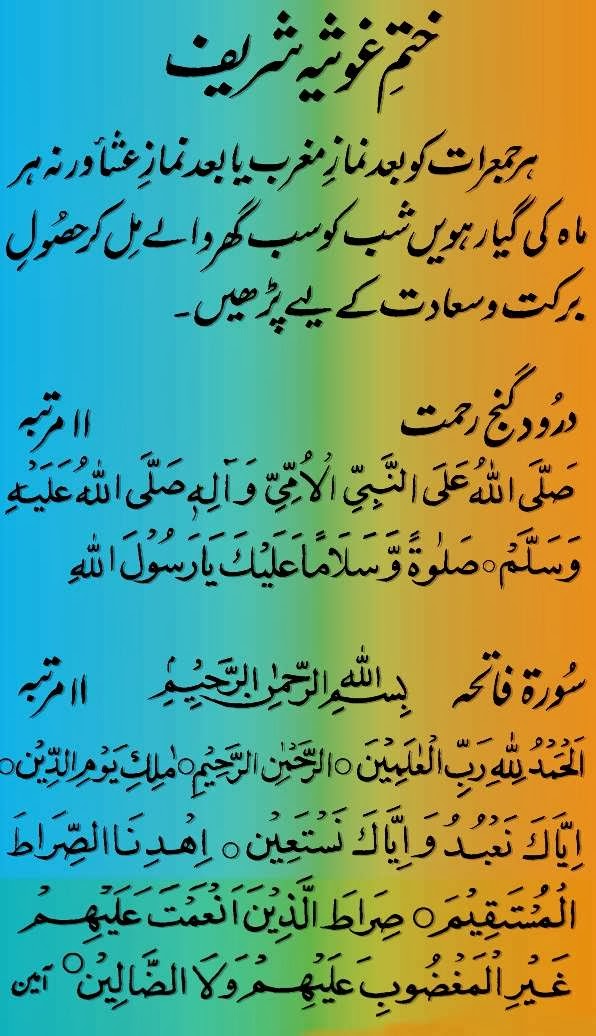 ختمِ غوثیہ شریف
ہر جمعرات کو بعد نمازِ مغرب یا بعد نمازِ عشأ ورنہ ہر
ماہ کی گیارہویں شب کو سب گھر والے مِل کر حصُولِ
برکت و سعادت کے لیے پڑھیں۔
درُود گنجِ رحمت ۱۱ مرتبہ
صَلَّی اللہُ عَلَی النَّبِیِّ الْاُمِّیِّ وَآلِہٖ صَلَّی اللہُ عَلَیْہِ
وَسَلَّمْ○ صَلٰوۃً وَّسَلَامًا عَلَیْكَ یَا رَسُوْلَ اللہِ
سُورۃ فاتحہ بِسْمِ اللہِ الرَّحْمٰنِ الرَّحِیْمِ ۱۱ مرتبہ
اَلْحَمْدُ لِلّٰہِ رَبِّ الْعٰلَمِیْنَ○ الرَّحْمٰنِ الرَّحِیْمِ○ مٰلِكِ یَوْمِ الدِّیْنِ○
اِیَّاكَ نَعْبُدُ وَ اِیَّاكَ نَسْتَعِیْن○ اِھْدِنَا الصِّرَاطَ
الْمُسْتَقِیْمَ○ صِرَاطَ الَّذِیْنَ اَنْعَمْتَ عَلَیْھِمْ
غَیْرِ الْمَغْضُوبِ عَلَیْھِمْ وَلَا الضَّالِیْن○ آمین